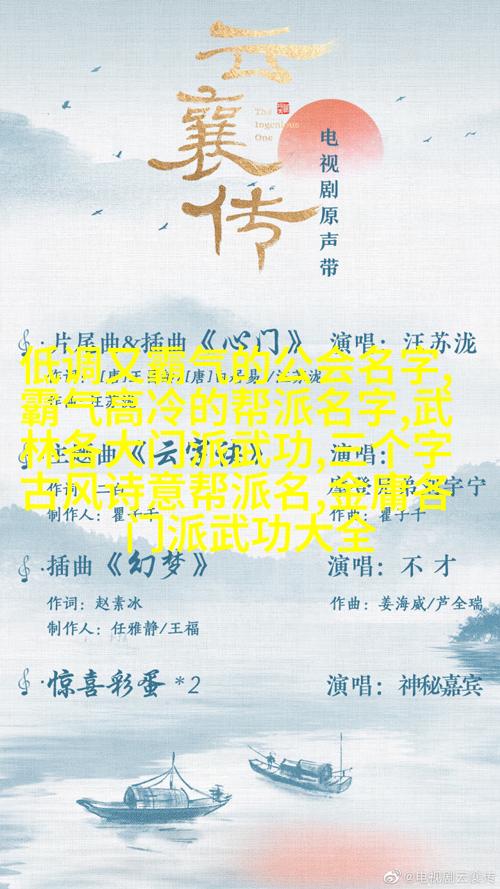 云襄传
The Ingenious One
电视剧原声带
片尾曲&插曲《心门》 演唱：汪苏泷
低调又霸气的公会名字,
霸气高冷的帮派名字,武
林各大门派武功,三个字
古风诗意帮派名,金庸各
门派武功大全
作曲：瞿子千
制作人：瞿子千
插曲《幻梦》 演唱：不才
作词：赵素冰 作曲：姜海威/芦全瑞
制作人：任雅静/王福
惊喜彩蛋*2 演唱：神秘嘉宾
@电视剧云襄传